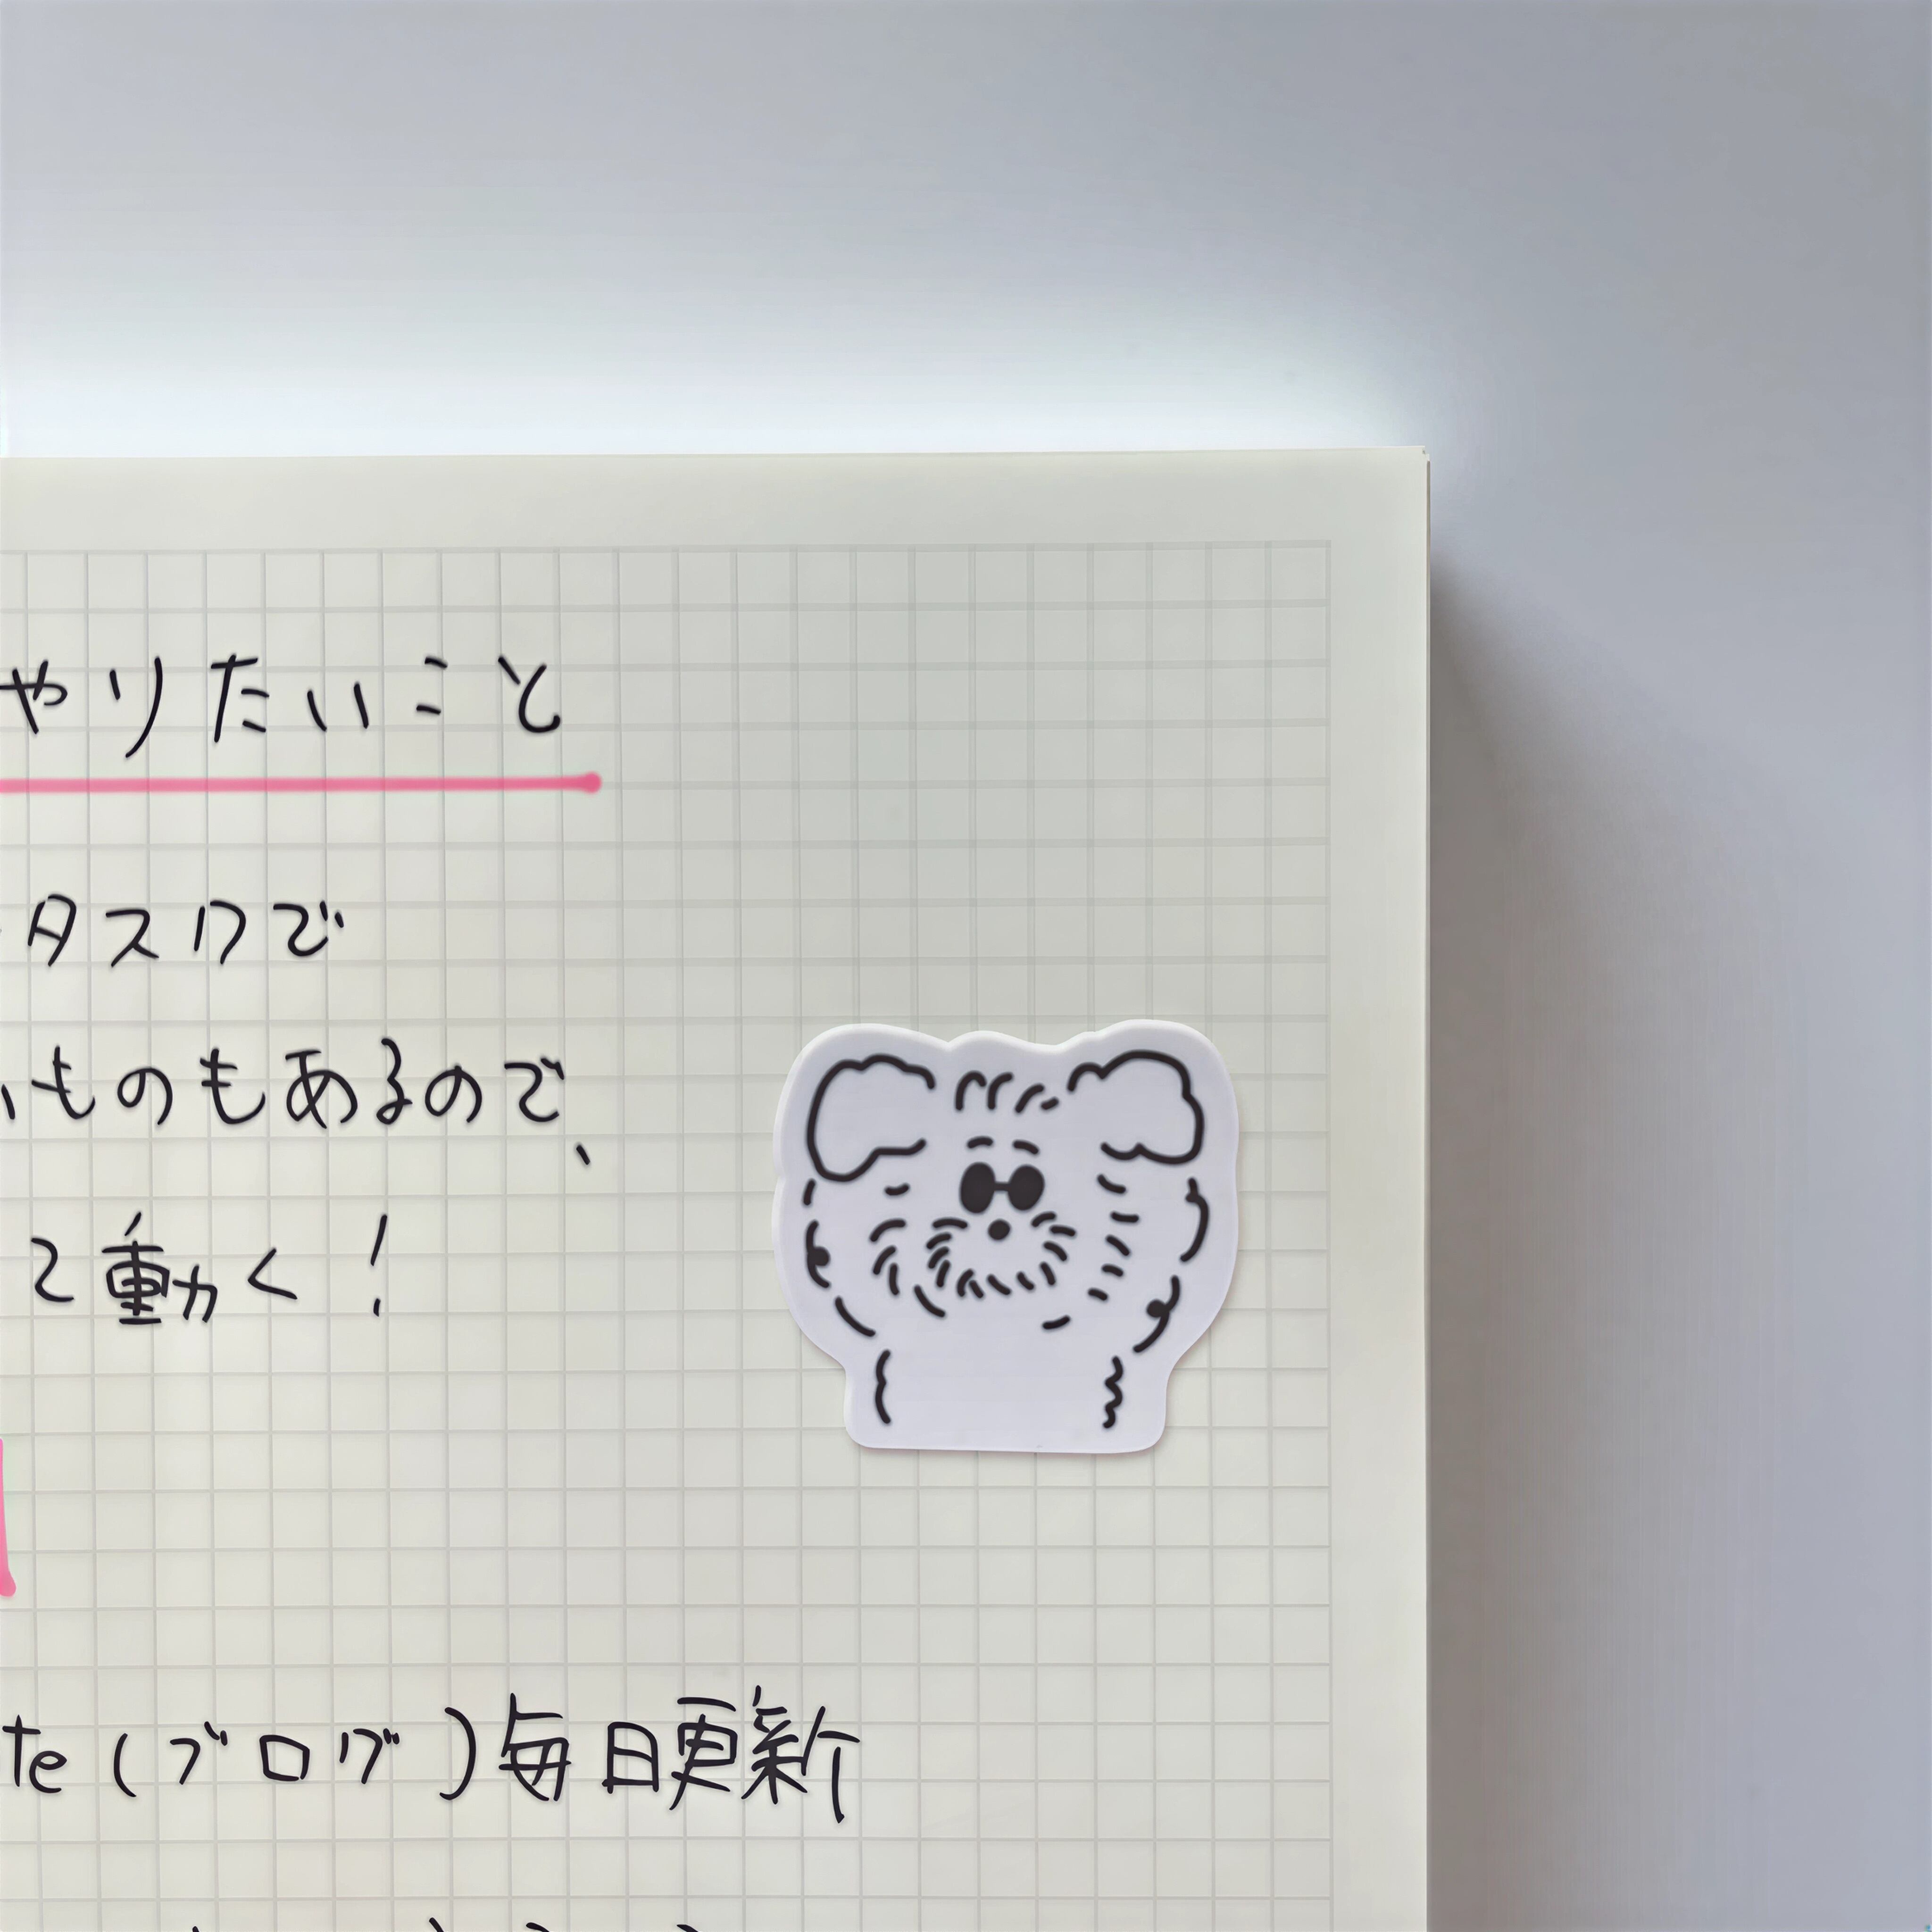 やりたいこと
タスクで
いものもあるので、
て動く!
te(ブログ)毎日更新